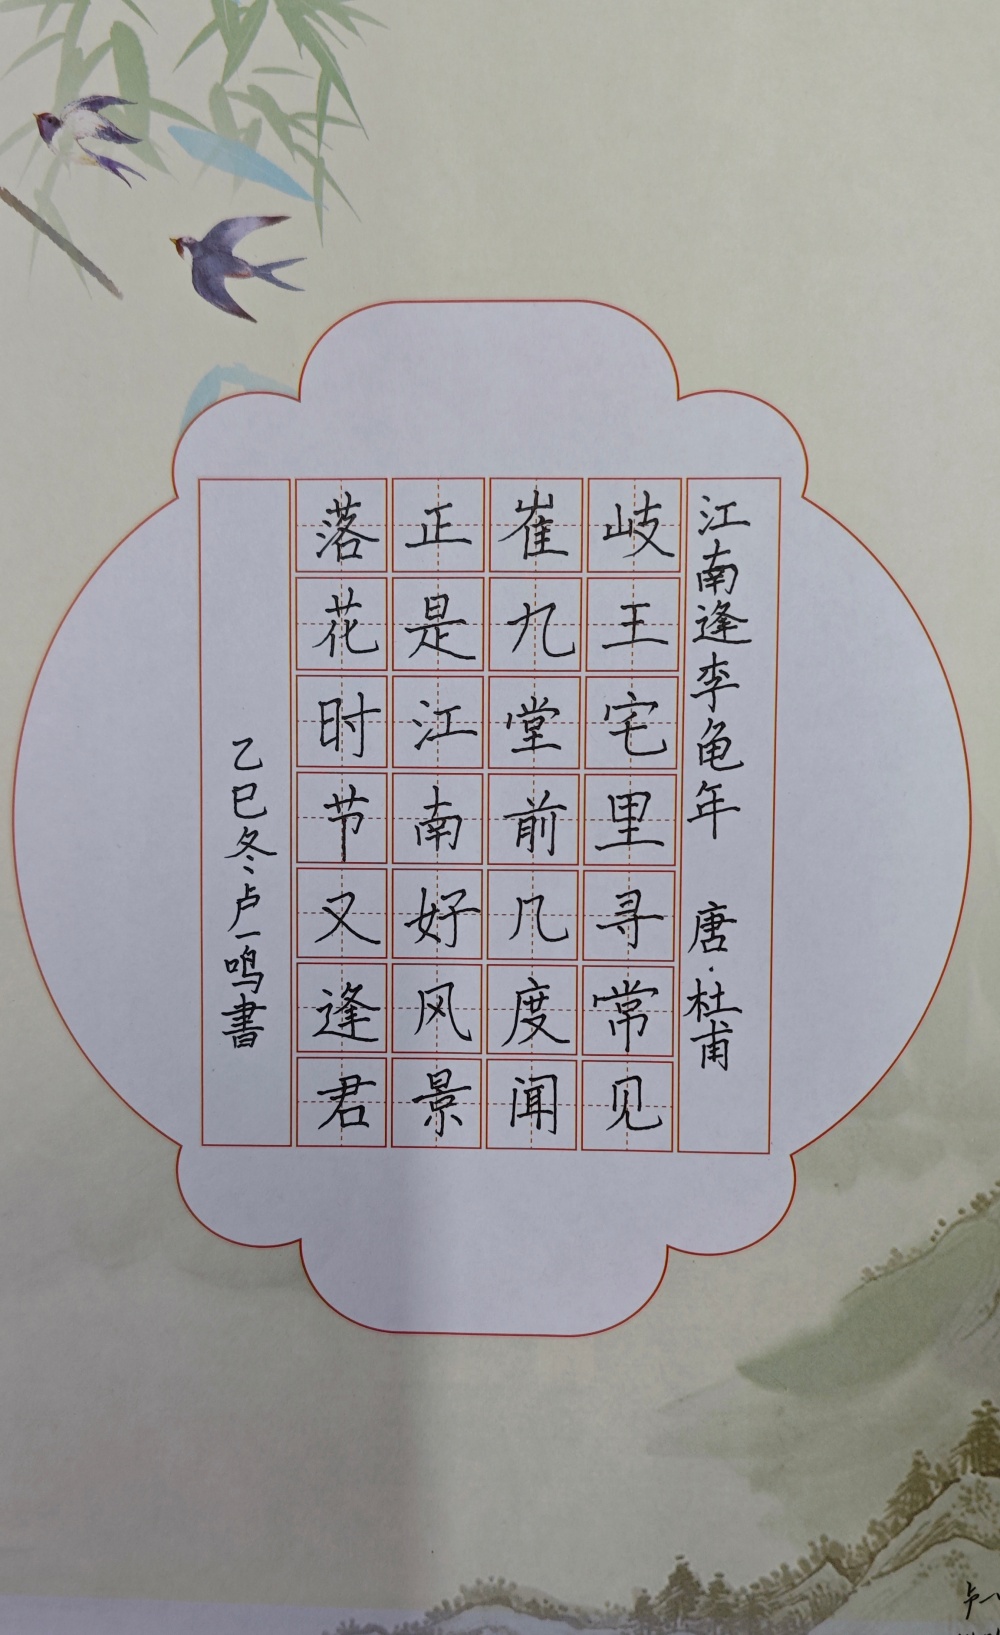 江南逢李龟年 唐·杜甫
岐王宅里寻常见
崔九堂前几度闻
正是江南好风景
落花时节又逢君
乙巳冬卢一鸣書